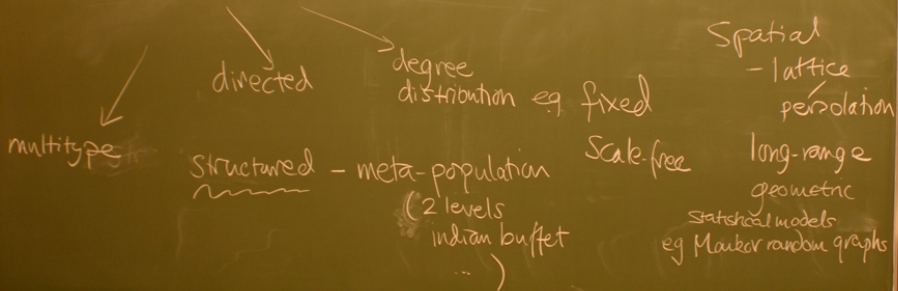 multitype
directed
degree
distribution eg fixed
scale-free
structured - meta-population
(2 levels
indian buffet
...)
Spatial
- lattice
persolation
long-range
geometric
statistical models
eg Markov random graphs